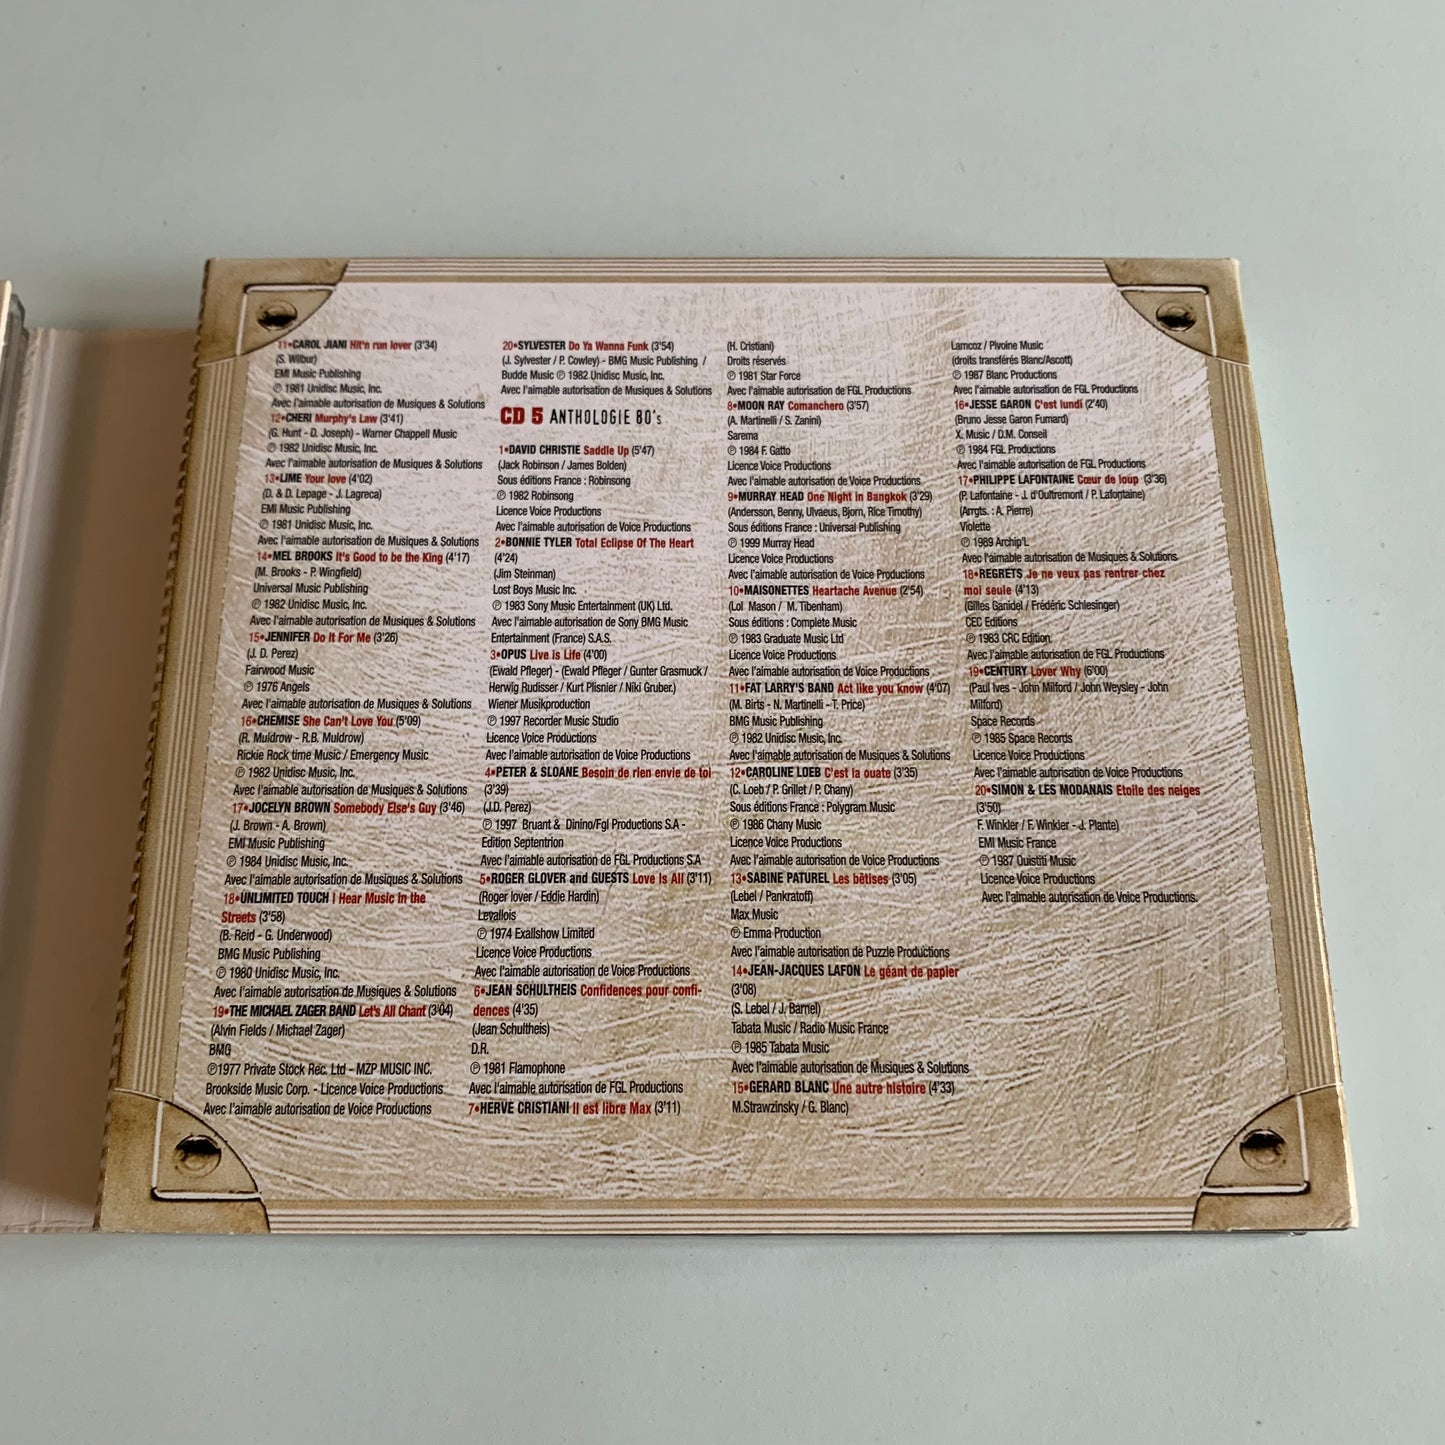 11•CAROL JIANI Hit'n run lover (3'34)
(S. Wilbur)
EMI Music Publishing
℗ 1981 Unidisc Music, Inc.
Avec l'aimable autorisation de Musiques & Solutions
12•CHERI Murphy's Law (3'41)
(G. Hunt - D. Joseph) - Warner Chappell Music
℗ 1982 Unidisc Music, Inc.
Avec l'aimable autorisation de Musiques & Solutions
13•LIME Your love (4'02)
(D. & D. Lepage - J. Lagreca)
EMI Music Publishing
℗ 1981 Unidisc Music, Inc.
Avec l'aimable autorisation de Musiques & Solutions
14•MEL BROOKS It's Good to be the King (4'17)
(M. Brooks - P. Wingfield)
Universal Music Publishing
℗ 1982 Unidisc Music, Inc.
Avec l'aimable autorisation de Musiques & Solutions
15•JENNIFER Do It For Me (3'26)
(J. D. Perez)
Fairwood Music
℗ 1976 Angels
Avec l'aimable autorisation de Musiques & Solutions
16•CHEMISE She Can't Love You (5'09)
(R. Muldrow - R.B. Muldrow)
Rickie Rock time Music / Emergency Music
℗ 1982 Unidisc Music, Inc.
Avec l'aimable autorisation de Musiques & Solutions
17•JOCELYN BROWN Somebody Else's Guy (3'46)
(J. Brown - A. Brown)
EMI Music Publishing
℗ 1984 Unidisc Music, Inc.
Avec l'aimable autorisation de Musiques & Solutions
18•UNLIMITED TOUCH I Hear Music in the
Streets (3'58)
(B. Reid - G. Underwood)
BMG Music Publishing
℗ 1980 Unidisc Music, Inc.
Avec l'aimable autorisation de Musiques & Solutions
19•THE MICHAEL ZAGER BAND Let's All Chant (3'04)
(Alvin Fields / Michael Zager)
BMG
℗1977 Private Stock Rec. Ltd - MZP MUSIC INC.
Brookside Music Corp. - Licence Voice Productions
Avec l'aimable autorisation de Voice Productions
20•SYLVESTER Do Ya Wanna Funk (3'54)
(J. Sylvester / P. Cowley) - BMG Music Publishing /
Budde Music ℗ 1982 Unidisc Music, Inc.
Avec l'aimable autorisation de Musiques & Solutions
CD 5 ANTHOLOGIE 80's
1•DAVID CHRISTIE Saddle Up (5'47)
(Jack Robinson / James Bolden)
Sous éditions France : Robinsong
℗ 1982 Robinsong
Licence Voice Productions
Avec l'aimable autorisation de Voice Productions
2•BONNIE TYLER Total Eclipse Of The Heart
(4'24)
(Jim Steinman)
Lost Boys Music Inc.
℗ 1983 Sony Music Entertainment (UK) Ltd.
Avec l'aimable autorisation de Sony BMG Music
Entertainment (France) S.A.S.
3•OPUS Live is Life (4'00)
(Ewald Pfleger) - (Ewald Pfleger / Gunter Grasmuck /
Herwig Rudisser / Kurt Plisnier / Niki Gruber.)
Wiener Musikproduction
℗ 1997 Recorder Music Studio
Licence Voice Productions
Avec l'aimable autorisation de Voice Productions
4•PETER & SLOANE Besoin de rien envie de toi
(3'39)
(J.D. Perez)
℗ 1997 Bruant & Dinino/Fgl Productions S.A -
Edition Septentrion
Avec l'aimable autorisation de FGL Productions S.A
5•ROGER GLOVER and GUESTS Love Is All (3'11)
(Roger lover / Eddie Hardin)
Levallois
℗ 1974 Exallshow Limited
Licence Voice Productions
Avec l'aimable autorisation de Voice Productions
6•JEAN SCHULTHEIS Confidences pour confi-
dences (4'35)
(Jean Schultheis)
D.R.
℗ 1981 Flamophone
Avec l'aimable autorisation de FGL Productions
7•HERVÉ CRISTIANI Il est libre Max (3'11)
(H. Cristiani)
Droits réservés
℗ 1981 Star Force
Avec l'aimable autorisation de FGL Productions
8•MOON RAY Comanchero (3'57)
(A. Martinelli / S. Zanini)
Sarema
℗ 1984 F. Gatto
Licence Voice Productions
Avec l'aimable autorisation de Voice Productions
9•MURRAY HEAD One Night in Bangkok (3'29)
(Andersson, Benny, Ulvaeus, Bjorn, Rice Timothy)
Sous éditions France : Universal Publishing
℗ 1999 Murray Head
Licence Voice Productions
Avec l'aimable autorisation de Voice Productions
10•MAISONETTES Heartache Avenue (2'54)
(Lol Mason / M. Tibenham)
Sous éditions : Complete Music
℗ 1983 Graduate Music Ltd
Licence Voice Productions
Avec l'aimable autorisation de Voice Productions
11•FAT LARRY'S BAND Act like you know (4'07)
(M. Birts - N. Martinelli - T. Price)
BMG Music Publishing
℗ 1982 Unidisc Music, Inc.
Avec l'aimable autorisation de Musiques & Solutions
12•CAROLINE LOEB C'est la ouate (3'35)
(C. Loeb / P. Grillet / P. Chany)
Sous éditions France : Polygram Music
℗ 1986 Chany Music
Licence Voice Productions
Avec l'aimable autorisation de Voice Productions
13•SABINE PATUREL Les bêtises (3'05)
(Lebel / Pankratoff)
Max Music
℗ Emma Production
Avec l'aimable autorisation de Puzzle Productions
14•JEAN-JACQUES LAFON Le géant de papier
(3'08)
(S. Lebel / J. Barnel)
Tabata Music / Radio Music France
℗ 1985 Tabata Music
Avec l'aimable autorisation de Musiques & Solutions
15•GERARD BLANC Une autre histoire (4'33)
M.Strawzinsky / G. Blanc)
Lamcoz / Pivoine Music
(droits transférés Blanc/Ascott)
℗ 1987 Blanc Productions
Avec l'aimable autorisation de FGL Productions
16•JESSE GARON C'est lundi (2'40)
(Bruno Jesse Garon Fumard)
X. Music / D.M. Conseil
℗ 1984 FGL Productions
Avec l'aimable autorisation de FGL Productions
17•PHILIPPE LAFONTAINE Cœur de loup (3'36)
(P. Lafontaine - J. d'Oultremont / P. Lafontaine)
(Arrgts. : A. Pierre)
Violette
℗ 1989 Archip'L
Avec l'aimable autorisation de Musiques & Solutions
18•REGRETS Je ne veux pas rentrer chez
moi seule (4'13)
(Gilles Ganidel / Frédéric Schlesinger)
CEC Editions
℗ 1983 CRC Edition
Avec l'aimable autorisation de FGL Productions
19•CENTURY Lover Why (6'00)
(Paul Ives - John Milford / John Weysley - John
Milford)
Space Records
℗ 1985 Space Records
Licence Voice Productions
Avec l'aimable autorisation de Voice Productions
20•SIMON & LES MODANAIS Etoile des neiges
(3'50)
F. Winkler / F. Winkler - J. Plante)
EMI Music France
℗ 1987 Ouistiti Music
Licence Voice Productions
Avec l'aimable autorisation de Voice Productions.